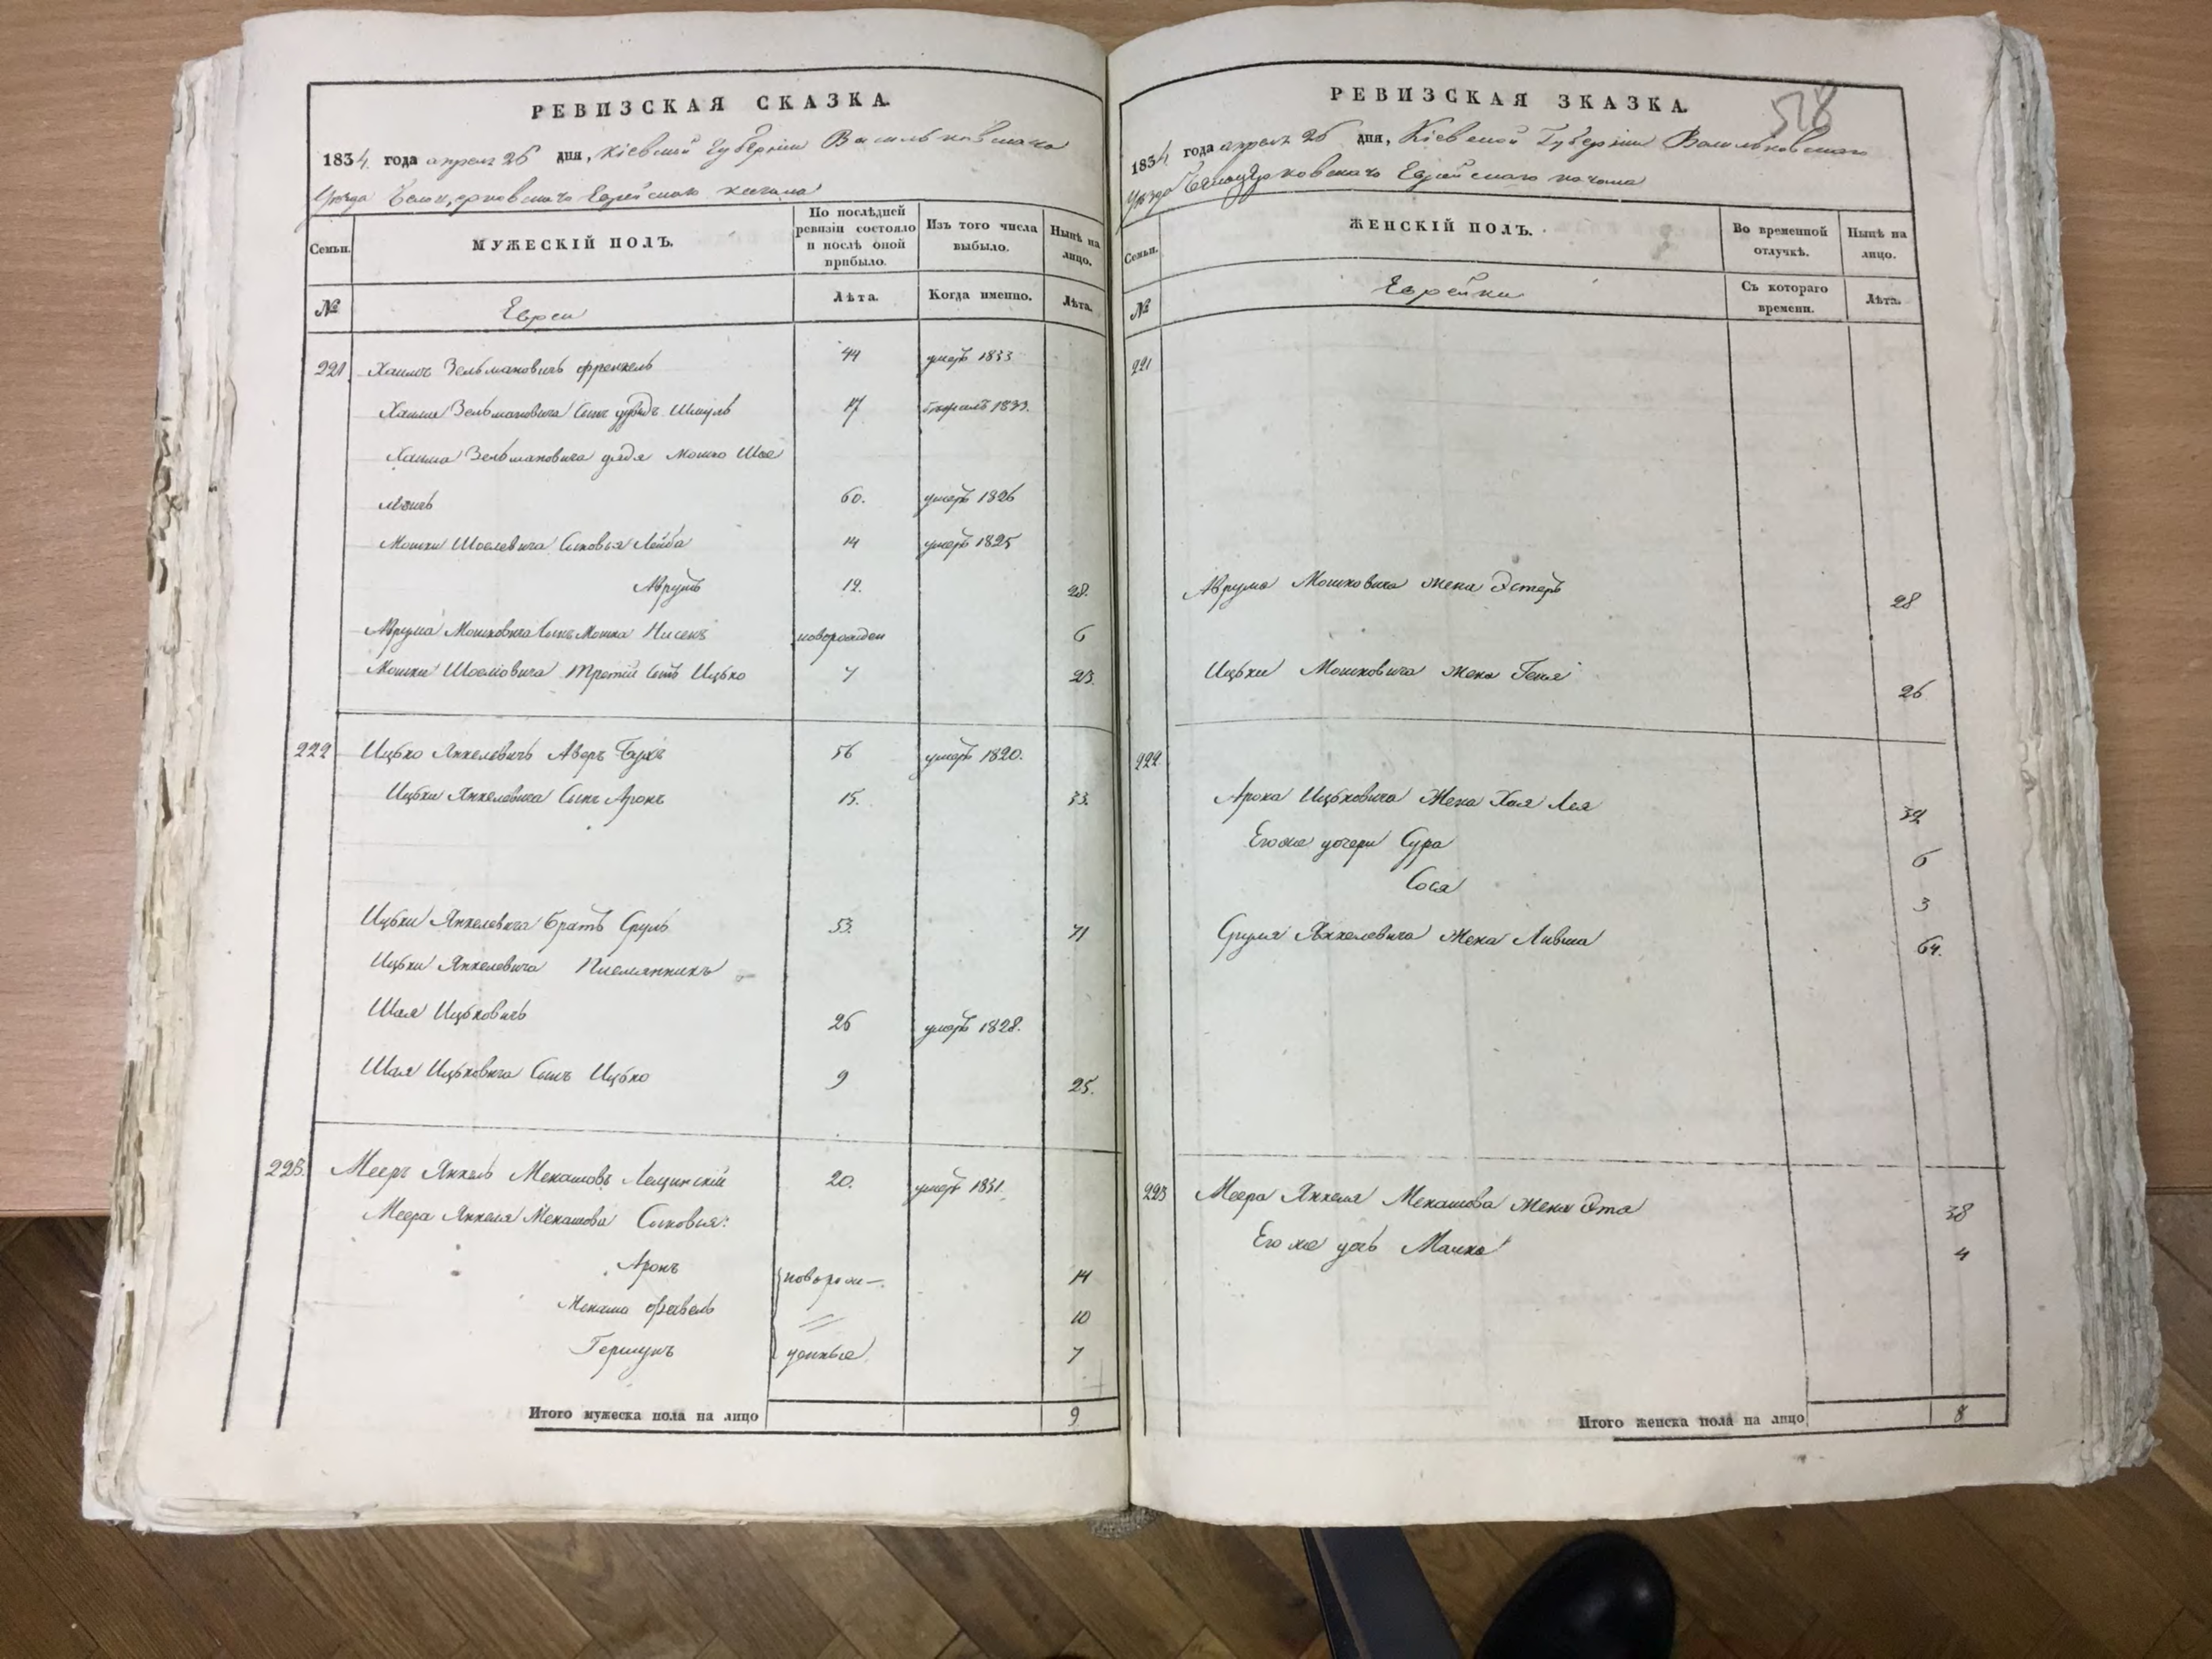 РЕВИЗСКАЯ СКАЗКА.
1834 года апреля 26 дня, Кіевской Губерніи Васильковскаго
Уѣзда Белоцерковскаго Еврейскаго кагала
Семьи.
МУЖЕСКІЙ ПОЛЪ.
По послѣдней ревизіи состояло и послѣ оной прибыло.
Изъ того числа выбыло.
Нынѣ на лицо.
№
Евреи
Лѣта.
Когда именно.
Лѣта.
221 Хаимъ Зельмановичъ Френкель 44 умеръ 1833
Хаима Зельмановича Сынъ Шмуль 17 1833.
Хаима Зельмановича дядя Мошко Шое
левичъ 60. умеръ 1826
Мошки Шоелевича Сыновья Лейба 14 умеръ 1825
Аврумъ 12. 28.
Аврума Мошковича Сынъ Мошка Нисенъ новорожден 6
Мошки Шоеловича третій Сынъ Ицько 7 23.
222 Ицько Янкелевичъ Аверъ Бухъ 56 умеръ 1820.
Ицьки Янкелевича Сынъ Аронъ 15. 33.
Ицьки Янкелевича братъ Сруль 53. 71
Ицьки Янкелевича Племянникъ
Шая Ицьковичъ 26 умеръ 1828.
Шая Ицьковича Сынъ Ицько 9 25.
223. Мееръ Янкель Менашовъ Лещинскій 20. умеръ 1831.
Меера Янкеля Менашова Сыновья:
Аронъ новорож— 14
Менаша Файвель 10
Гершунъ денные 7
Итого мужеска пола на лицо 9
РЕВИЗСКАЯ ЗКАЗКА.
528
1834 года апреля 26 дня, Кіевской Губерніи Васильковскаго
Уѣзда Белоцерковскаго Еврейскаго кагала
Семьи.
ЖЕНСКІЙ ПОЛЪ.
Во временной отлучкѣ.
Нынѣ на лицо.
№
Еврейки
Съ котораго времени.
Лѣта.
221
Аврума Мошковича жена Эстеръ 28
Ицьки Мошковича жена Геня 26
222
Арона Ицьковича Жена Хая Лея 32
Его же дочери Сура 6
Сося 3
Сруля Янкелевича Жена Ливша 64.
223 Меера Янкеля Менашова жена Эта 38
Его же дочь Малка 4
Итого женска пола на лицо 8